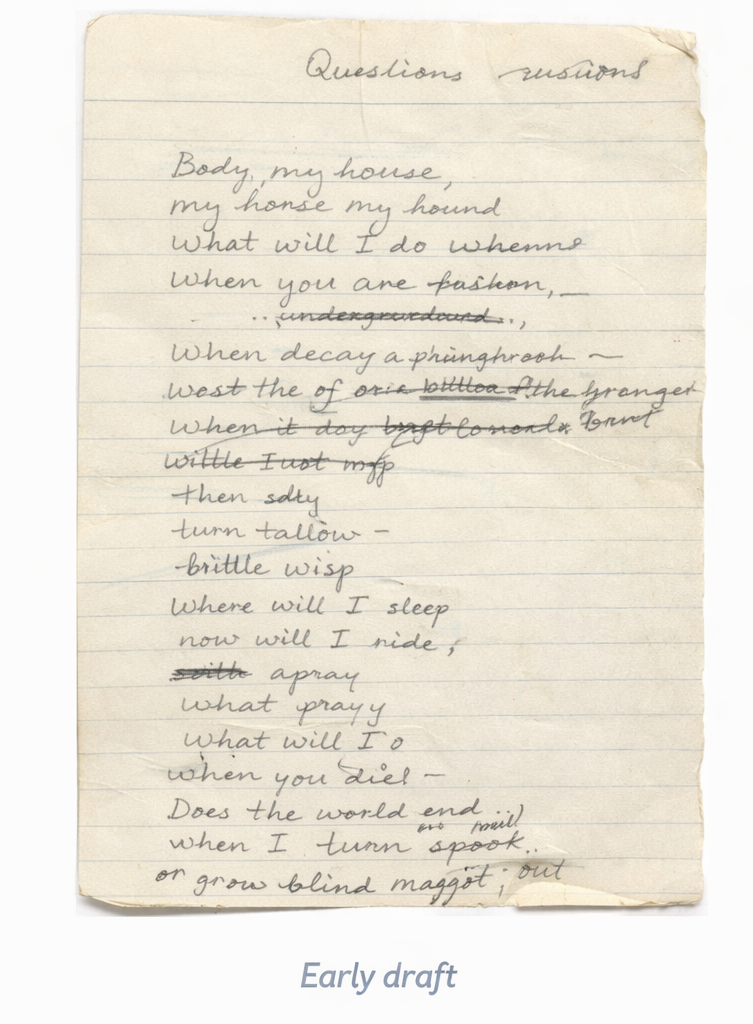 Questions
Body, my house,
my horse my hound
What will I do whenns
When you are
When decay a
west the of the
When it day
I
then
turn tallow -
brittle wisp
Where will I sleep
now will I ride,
apray
What prayy
What will I o
when you die! -
Does the world end ..)
when I turn spook..
or grow blind maggot; out
Early draft